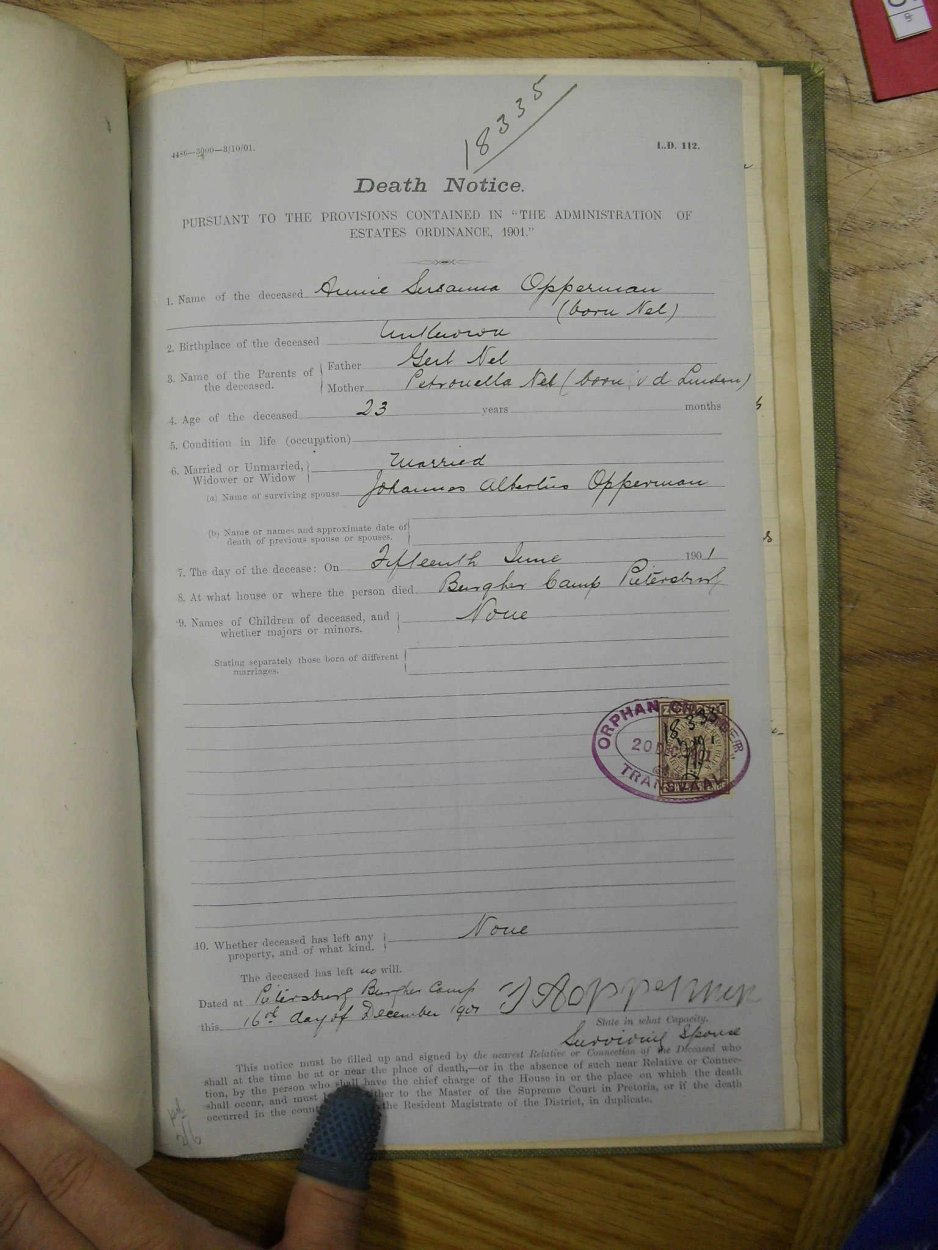 18335
4486—5000—3/10/01. L.D. 112.
Death Notice.
PURSUANT TO THE PROVISIONS CONTAINED IN "THE ADMINISTRATION OF
ESTATES ORDINANCE, 1901."
1. Name of the deceased Annie Susanna Opperman
(born Nel)
2. Birthplace of the deceased Unknown
3. Name of the Parents of the deceased. Father Gert Nel
Mother Petronella Nel (born v d Linden)
4. Age of the deceased 23 years months
5. Condition in life (occupation)
6. Married or Unmarried, Widower or Widow Married
(a) Name of surviving spouse Johannes Albertus Opperman
(b) Name or names and approximate date of
death of previous spouse or spouses.
7. The day of the decease: On Fifteenth June 1901
8. At what house or where the person died Burgher Camp Pietersburg
9. Names of Children of deceased, and None
whether majors or minors.
Stating separately those born of different
marriages.
ORPHAN CHAMBER,
18335
20 DEC
TRANSVAAL
10. Whether deceased has left any None
property, and of what kind.
The deceased has left no will.
Dated at Pietersburg Burgher Camp
this 16th day of December 1901
State in what Capacity.
Surviving Spouse
This notice must be filled up and signed by the nearest Relative or Connection of the Deceased who
shall at the time be at or near the place of death,—or in the absence of such near Relative or Connec-
tion, by the person who shall have the chief charge of the House in or the place on which the death
shall occur, and must either to the Master of the Supreme Court in Pretoria, or if the death
occurred in the the Resident Magistrate of the District, in duplicate.